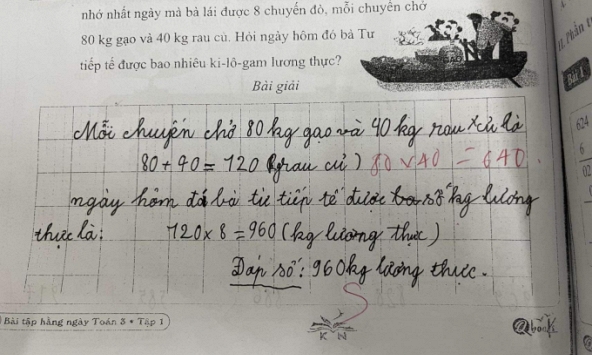 nhớ nhất ngày mà bà lái được 8 chuyến đò, mỗi chuyến chở
80 kg gạo và 40 kg rau củ. Hỏi ngày hôm đó bà Tư
tiếp tế được bao nhiêu ki-lô-gam lương thực?
GẠO
Bài giải
Mỗi chuyến chở 80 kg gạo và 40 kg rau củ là
80 + 40 = 120 (rau củ) 80 x 40 = 640
ngày hôm đó bà tư tiếp tế được số kg lương
thực là:
120 x 8 = 960 (kg lương thực)
Đáp số: 960 kg lương thực.
S
Bài tập hằng ngày Toán 3 • Tập 1
K N
@book
II. Phần
Bài 1
624
6
02